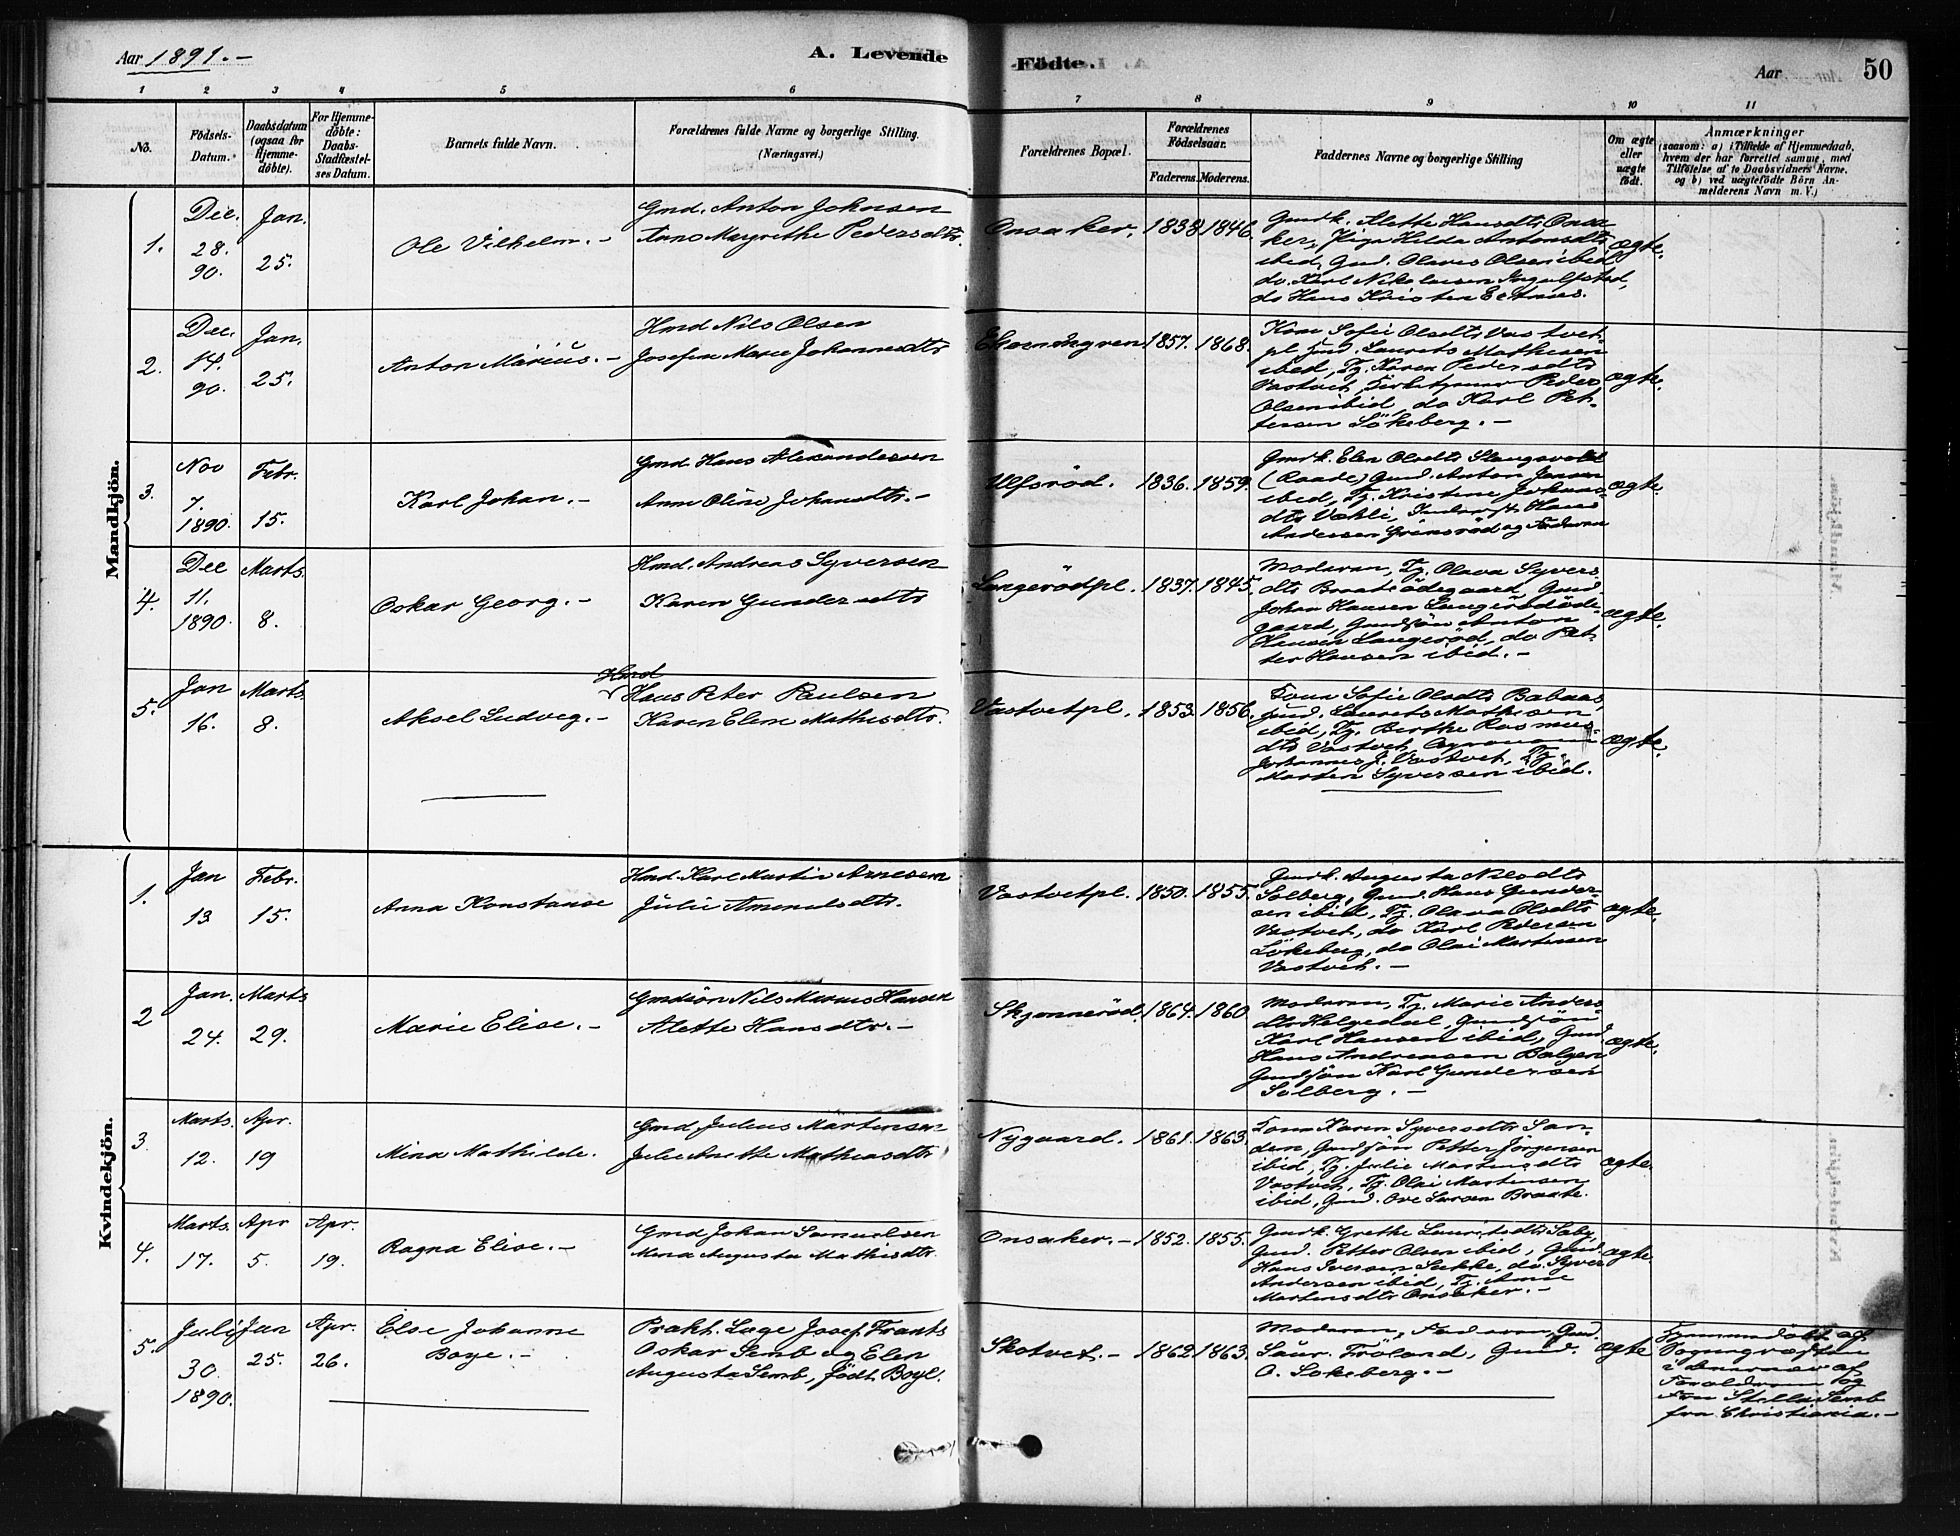 Aar 1891.-
A. Levende
Födte.
Aar
50
1 2 3 4 5 6 7 8 9 10 11
No.
Födsels-
Datum.
Daabsdatum
(ogsaa for
Hjemme-
döbte).
For Hjemme-
döbte:
Daabs-
Stadfæstel-
ses Datum.
Barnets fulde Navn.
Forældrenes fulde Navne og borgerlige Stilling.
(Næringsvei.)
Forældrenes Bopæl.
Forældrenes
Födselsaar.
Faderens. Moderens.
Faddernes Navne og borgerlige Stilling
Om ægte
eller
uægte
födt.
Anmærkninger
(saasom: a) i Tilfælde af Hjemmedaab,
hvem der har forrettet samme, med
Tilföielse af to Daabsvidners Navne,
og b) ved uægtefödte Börn An-
melderens Navn m. V.)
Mandkjön.
1.
Dec.
28.
90.
Jan.
25.
Ole Vilhelm.-
Gmd. Anton Johnsen
Anne Margrethe Pedersdtr.
Onsaker.
1838
1846.
Gmdk. Alette Hansdtr Onsa
ker, Pige Hilda Antonsdtr
ibid, Gmd. Olaves Olsen ibid
do. Karl Nikolaisen Ingulfstad,
do Hans Kristen
ægte.
2.
Dec.
14.
90.
Jan.
25.
Anton Marius.-
Hmd Nils Olsen
Josefine Marie Johannesdtr
1857.
1868.
Kone Sofie Olsdtr Vastvet
pl. Hmd. Laurits Mathisen
ibid, Tj. Karen Pedersdtr
Vastvet, Peder
Olsen ibid, do Karl Pet-
tersen Lökeberg.-
ægte.
3.
Nov
7.
1890.
Febr.
15.
Karl Johan.-
Gmd. Hans Alexandersen
Anne Oline Johansdtr.-
Ulfsröd.
1836.
1859.
Gmdk. Elen Olsdtr
(Raade) Gmd. Anton Jensen
ibid, Tj. Kristine Johans-
dtr Vahli, Hans
Andersen Grimsröd og Faderen
ægte.
4.
Dec
11.
1890.
Marts.
8.
Oskar Georg.-
Hmd. Andreas Syversen
Karen Gundersdtr
Langerödpl.
1837.
1845.
Moderen, Tj. Olava Syvers
dtr Braatesödegaard, Gmd
Johan Hansen Langerödöde-
gaard, Gmdsön Anton
Hansen Langeröd, do Pet-
ter Hansen ibid.-
ægte.
5.
Jan
16.
Marts.
8.
Aksel Ludvig.-
Hmd
Hans Peter Paulsen
Karen Eline Mathisdtr.
Vastvetpl.
1853.
1856.
Kone Sofie Olsdtr
Hmd. Laurits Mathisen
ibid, Tj. Berthe Rasmus-
dtr Vastvet,
Johannes J. Vastvet, Tj.
Morten Syversen ibid.
ægte.
Kvindekjön.
1.
Jan
13
Febr.
15.
Anna Konstanse
Hmd. Karl Martin Arnesen
Julie Amundsdtr.
Vastvetpl.
1850.
1855.
Gmdk. Augusta Nilsdtr
Solberg, Gmd. Hans Gunder-
sen ibid, Tj. Olava Olsdtr
Vastvet, do Karl Pedersen
Lökeberg, do Olai Martinsen
Vastvet.-
ægte.
2
Jan.
24.
Marts
29.
Marie Elise.-
Gmdsön Nils Marius Hansen
Alette Hansdtr.-
Skjonneröd.
1864.
1860.
Moderen, Tj. Marie Anders
dtr Helgedal, Gmdsön
Karl Hansen ibid, Gmd.
Hans Andreasen Bølgen
Gmdsön Karl Gundersen
Solberg.-
ægte.
3
Marts.
12.
Apr.
19
Mina Mathilde.
Gmd. Julius Martinsen
Julie Anette Mathiasdtr
Nygaard.
1861.
1863.
Kone Karen Syversdtr San-
den, Gmdsön Petter Jörgensen
ibid, Tj. Julie Martinsdtr
Vastvet, Tj. Olai Martinsen
ibid, Gmd. Ove Larsen Braate.
ægte.
4.
Marts.
17.
Apr
5.
Apr.
19.
Ragna Elise.-
Gmd Johan Samuelsen
Mina Augusta Mathisdtr.
Onsaker.-
1852.
1855.
Gmdk. Grethe Lauritsdtr Saby,
Gmd. Petter Olsen ibid, Gmd.
Hans Iversen Sukke, do. Syver
Andersen ibid, Tj. Anne
Martinsdtr Onsaker.-
ægte
5.
Juli
30.
1890.
Jan
25.
Apr.
26.
Else Johanne
Boye.-
Prakt. Læge Josef Frants
Oskar Semb og Elen
Augusta Semb, födt Boye.
Skotvet.-
1862
1863.
Moderen, Faderen, Gmd.
Laur. Fröland, Gmd.
O. Lokeberg.-
ægte
Hjemmedöbt af
Sognepræsten
i nærvær af
Forældrene og
Frøn Stella Semb
fra Christiania.-